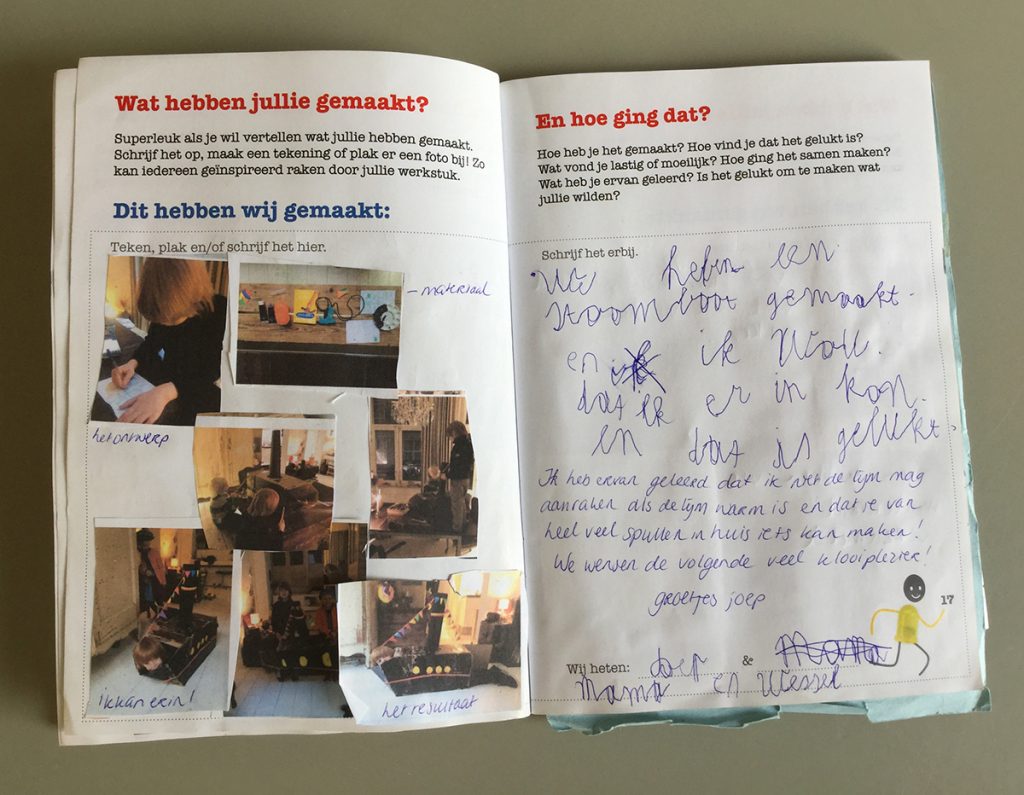 Wat hebben jullie gemaakt?
Superleuk als je wil vertellen wat jullie hebben gemaakt.
Schrijf het op, maak een tekening of plak er een foto bij! Zo
kan iedereen geïnspireerd raken door jullie werkstuk.
Dit hebben wij gemaakt:
Teken, plak en/of schrijf het hier.
- materiaal
het ontwerp
ik kan erin!
het resultaat
En hoe ging dat?
Hoe heb je het gemaakt? Hoe vind je dat het gelukt is?
Wat vond je lastig of moeilijk? Hoe ging het samen maken?
Wat heb je ervan geleerd? Is het gelukt om te maken wat
jullie wilden?
Schrijf het erbij.
We hebn een
stoomboot gemaakt.
en ik wou.
dat ik er in kon.
en dat is gelukt.
Ik heb ervan geleerd dat ik niet de lijm mag
aanraken als de lijm warm is en dat je van
heel veel spullen in huis iets kan maken!
We wensen de volgende veel klooiplezier!
groetjes joep
17
Wij heten: Joep & Mama
Mama en Wessel